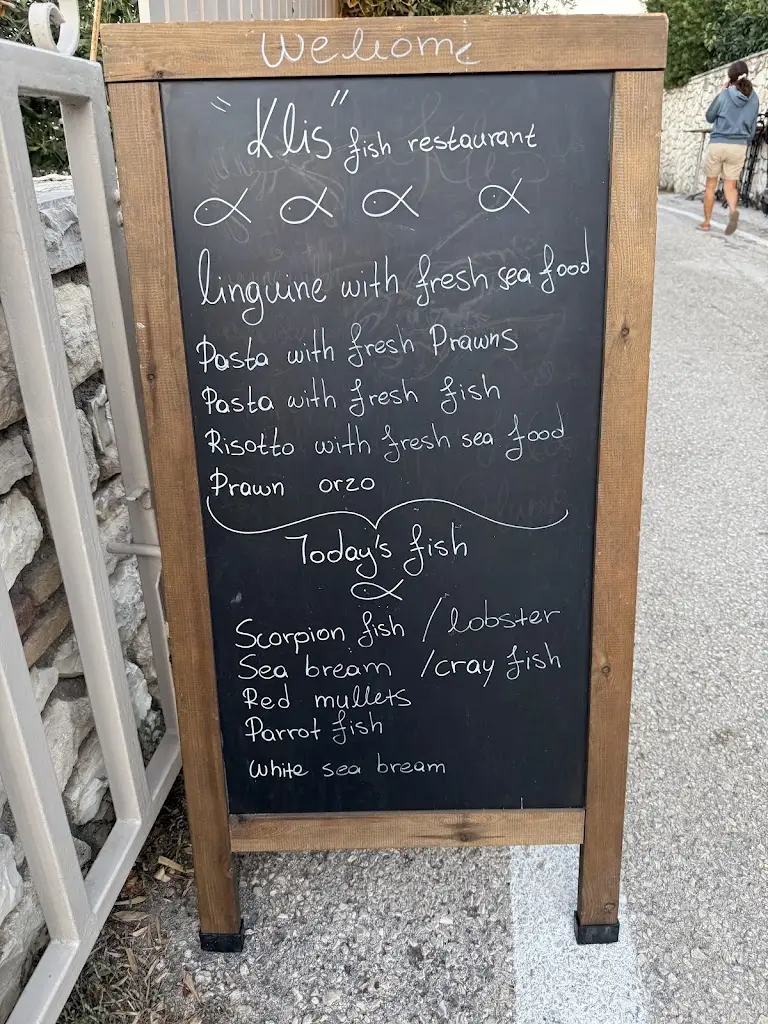 Welcome
"Klis" fish restaurant
linguine with fresh sea food
Pasta with fresh Prawns
Pasta with fresh fish
Risotto with fresh sea food
Prawn orzo
Today's fish
Scorpion fish / lobster
Sea bream / cray fish
Red mullets
Parrot fish
White sea bream